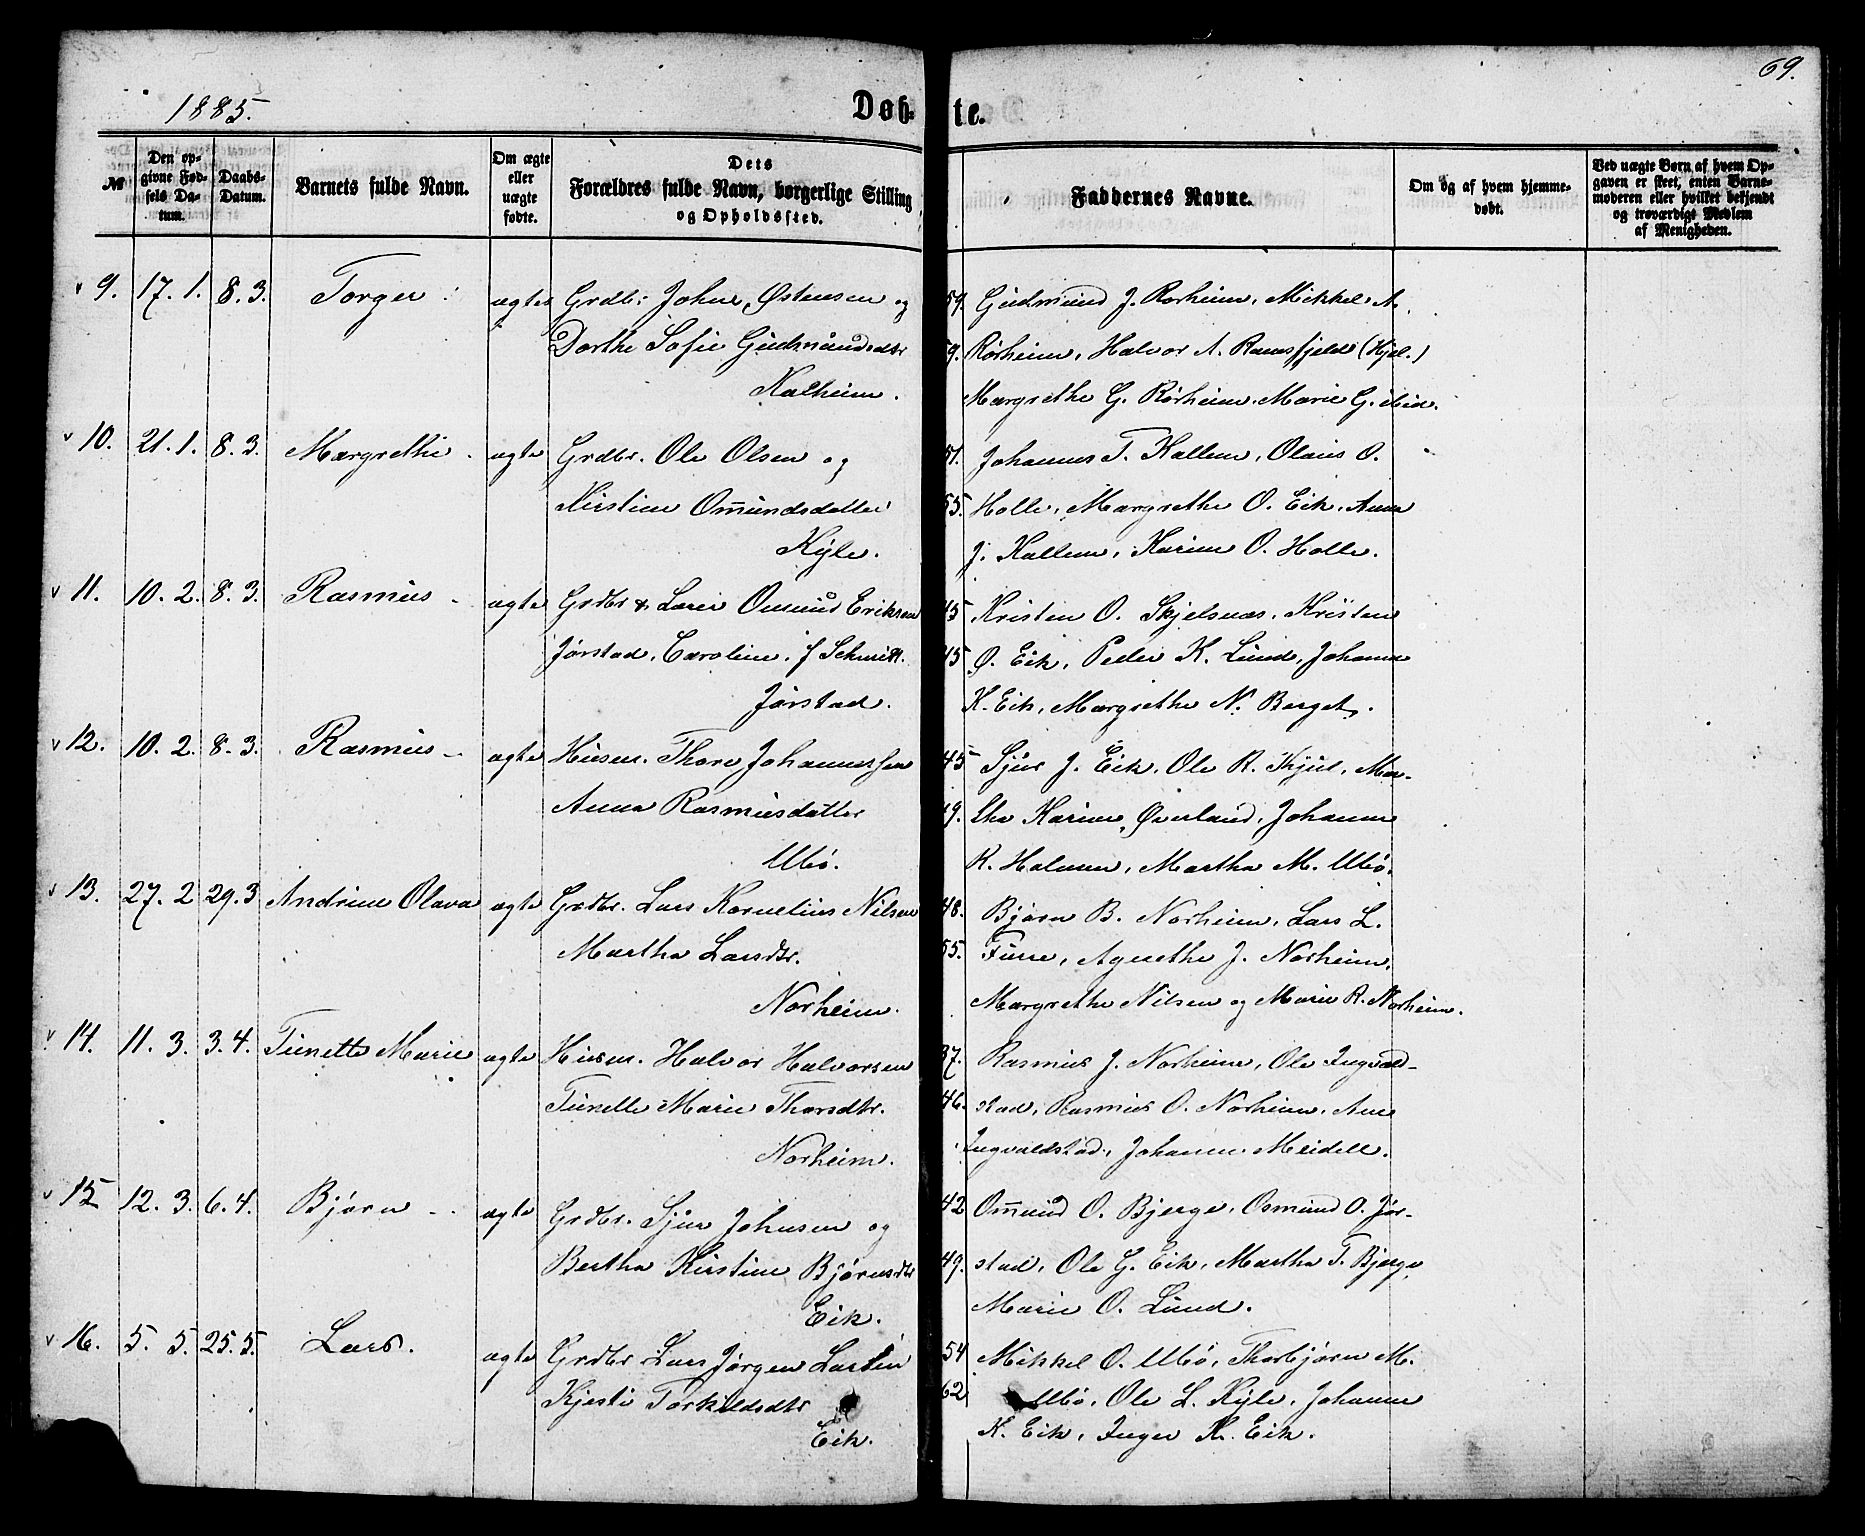 69.
1885.
Døb- te.
№
Den opgivne Fødsels Datum.
Daabs-Datum.
Barnets fulde Navn.
Om ægte eller uægte fødte.
Dets
Forældres fulde Navn, borgerlige Stilling
og Opholdssted.
Faddernes Navne.
Om og af hvem hjemmedøbt.
Ved uægte Børn af hvem Opgaven er skeet, enten Barnemoderen eller hvilket bekjendt og troværdigt Medlem af Menigheden.
9. 17. 1. 8. 3. Torger ægte Grdbr. John Østensen og 59. Gudmund J. Rørheim, Mikkel A.
Dorthe Sofie Gudmundsdtr 59. Rørheim, Halvor A. Ramsfjeld (Hjel.)
Nalheim. Margrethe G. Rørheim, Marie G. ibid.
10. 21. 1. 8. 3. Margrethe ægte Grdbr. Ole Olsen og 51. Johannes T. Hallem, Olaus O.
Kirstine Omundsdatter 55. Halle, Margrethe O. Eik, Anna
Kyle. J. Hallem, Karine O. Halle.
11. 10. 2. 8. 3. Rasmus ægte Grdbr & Osmund Eriksen 45 Kristen O. Skjelsnæs, Kristen
Jørstad, Caroline, f Schmitt. 45 Ø. Eik, Peder K. Lund, Johanne
Jørstad. K. Eik, Margrethe N. Berget.
12. 10. 2. 8. 3. Rasmus ægte Husm. Thore Johannessen 45 Sjur J. Eik, Ole R. Kjul, Mar-
Anna Rasmusdatter 49. tha Karine Øverland, Johanne
Ubø. R. Halmen, Martha M. Ubø.
13. 27. 2 29. 3 Andrine Olava ægte Grdbr. Lars Kornelius Nilsen 48. Bjørn B. Norheim, Lars L.
Martha Larsdtr. 55. Furre, Agnethe J. Norheim,
Norheim. Margrethe Nilsen og Marie R. Norheim.
14. 11. 3. 3. 4. Tunette Marie ægte Husm. Halvor Halvorsen 37. Rasmus J. Norheim, Ole Ingvald-
Tunette Marie Thorsdtr. 46. stad, Rasmus O. Norheim, Ane
Norheim. Ingvaldstad, Johanne Meidell.
15 12. 3. 6. 4. Bjørn ægte Grdbr. Sjur Johnsen og 42 Ommund O. Bjerge, Osmund O. Jør-
Bertha Kirstine Bjørnsdtr 49. stad, Ole G. Eik, Martha T. Bjerge,
Eik. Marie O. Lund.
16. 5. 5. 25. 5. Lars. ægte Grdbr Lars Jørgen Larsen 54 Mikkel O. Ubø, Thorbjørn M.
Kjersti Torkildsdtr 62 Ubø, Ole L. Kyle, Johanne
Eik. K. Eik, Inger K. Eik.